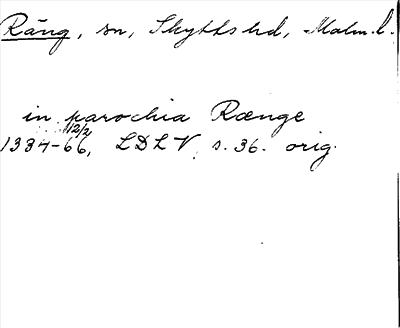 Räng, sn, Skytts hd, Malm. l.
in parochia Rænge
12/2
1334-66, LDLV, s. 36. orig.